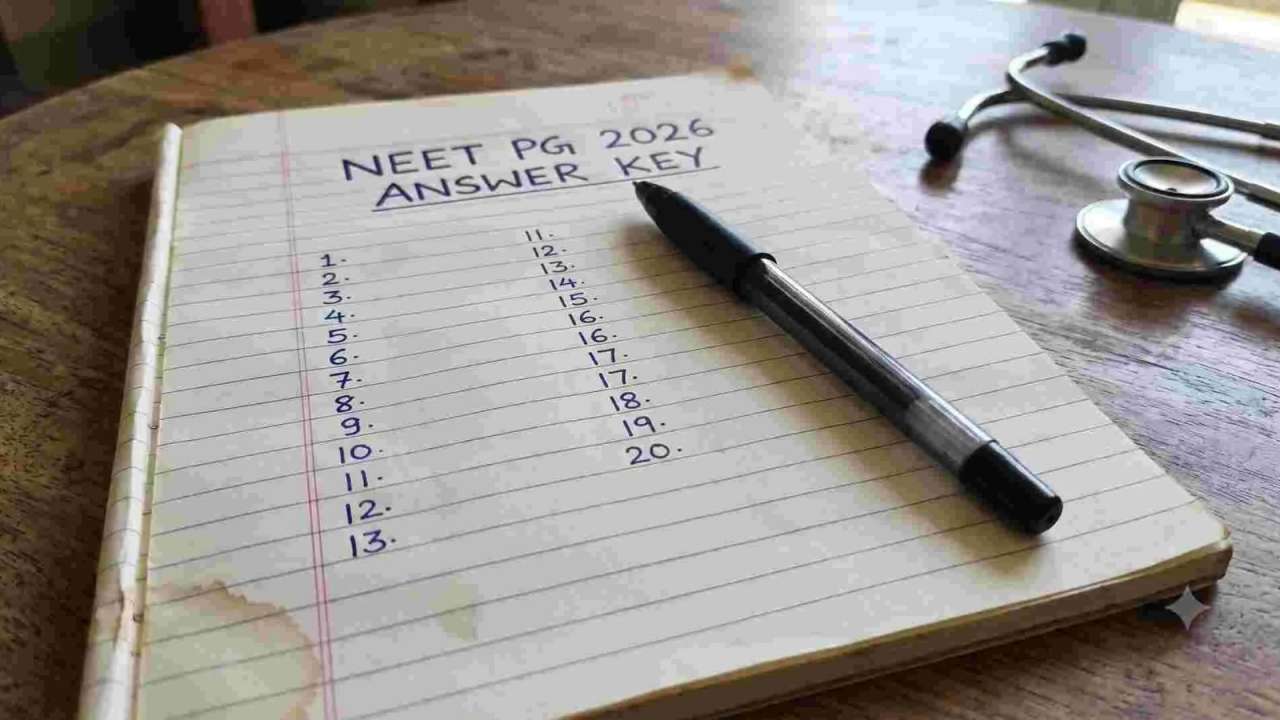 NEET PG 2026
ANSWER KEY
1.
2.
3.
4.
5.
6.
7.
8.
9.
10.
11.
12.
13.
11.
12.
13.
14.
15.
16.
16.
17.
17.
18.
19.
20.